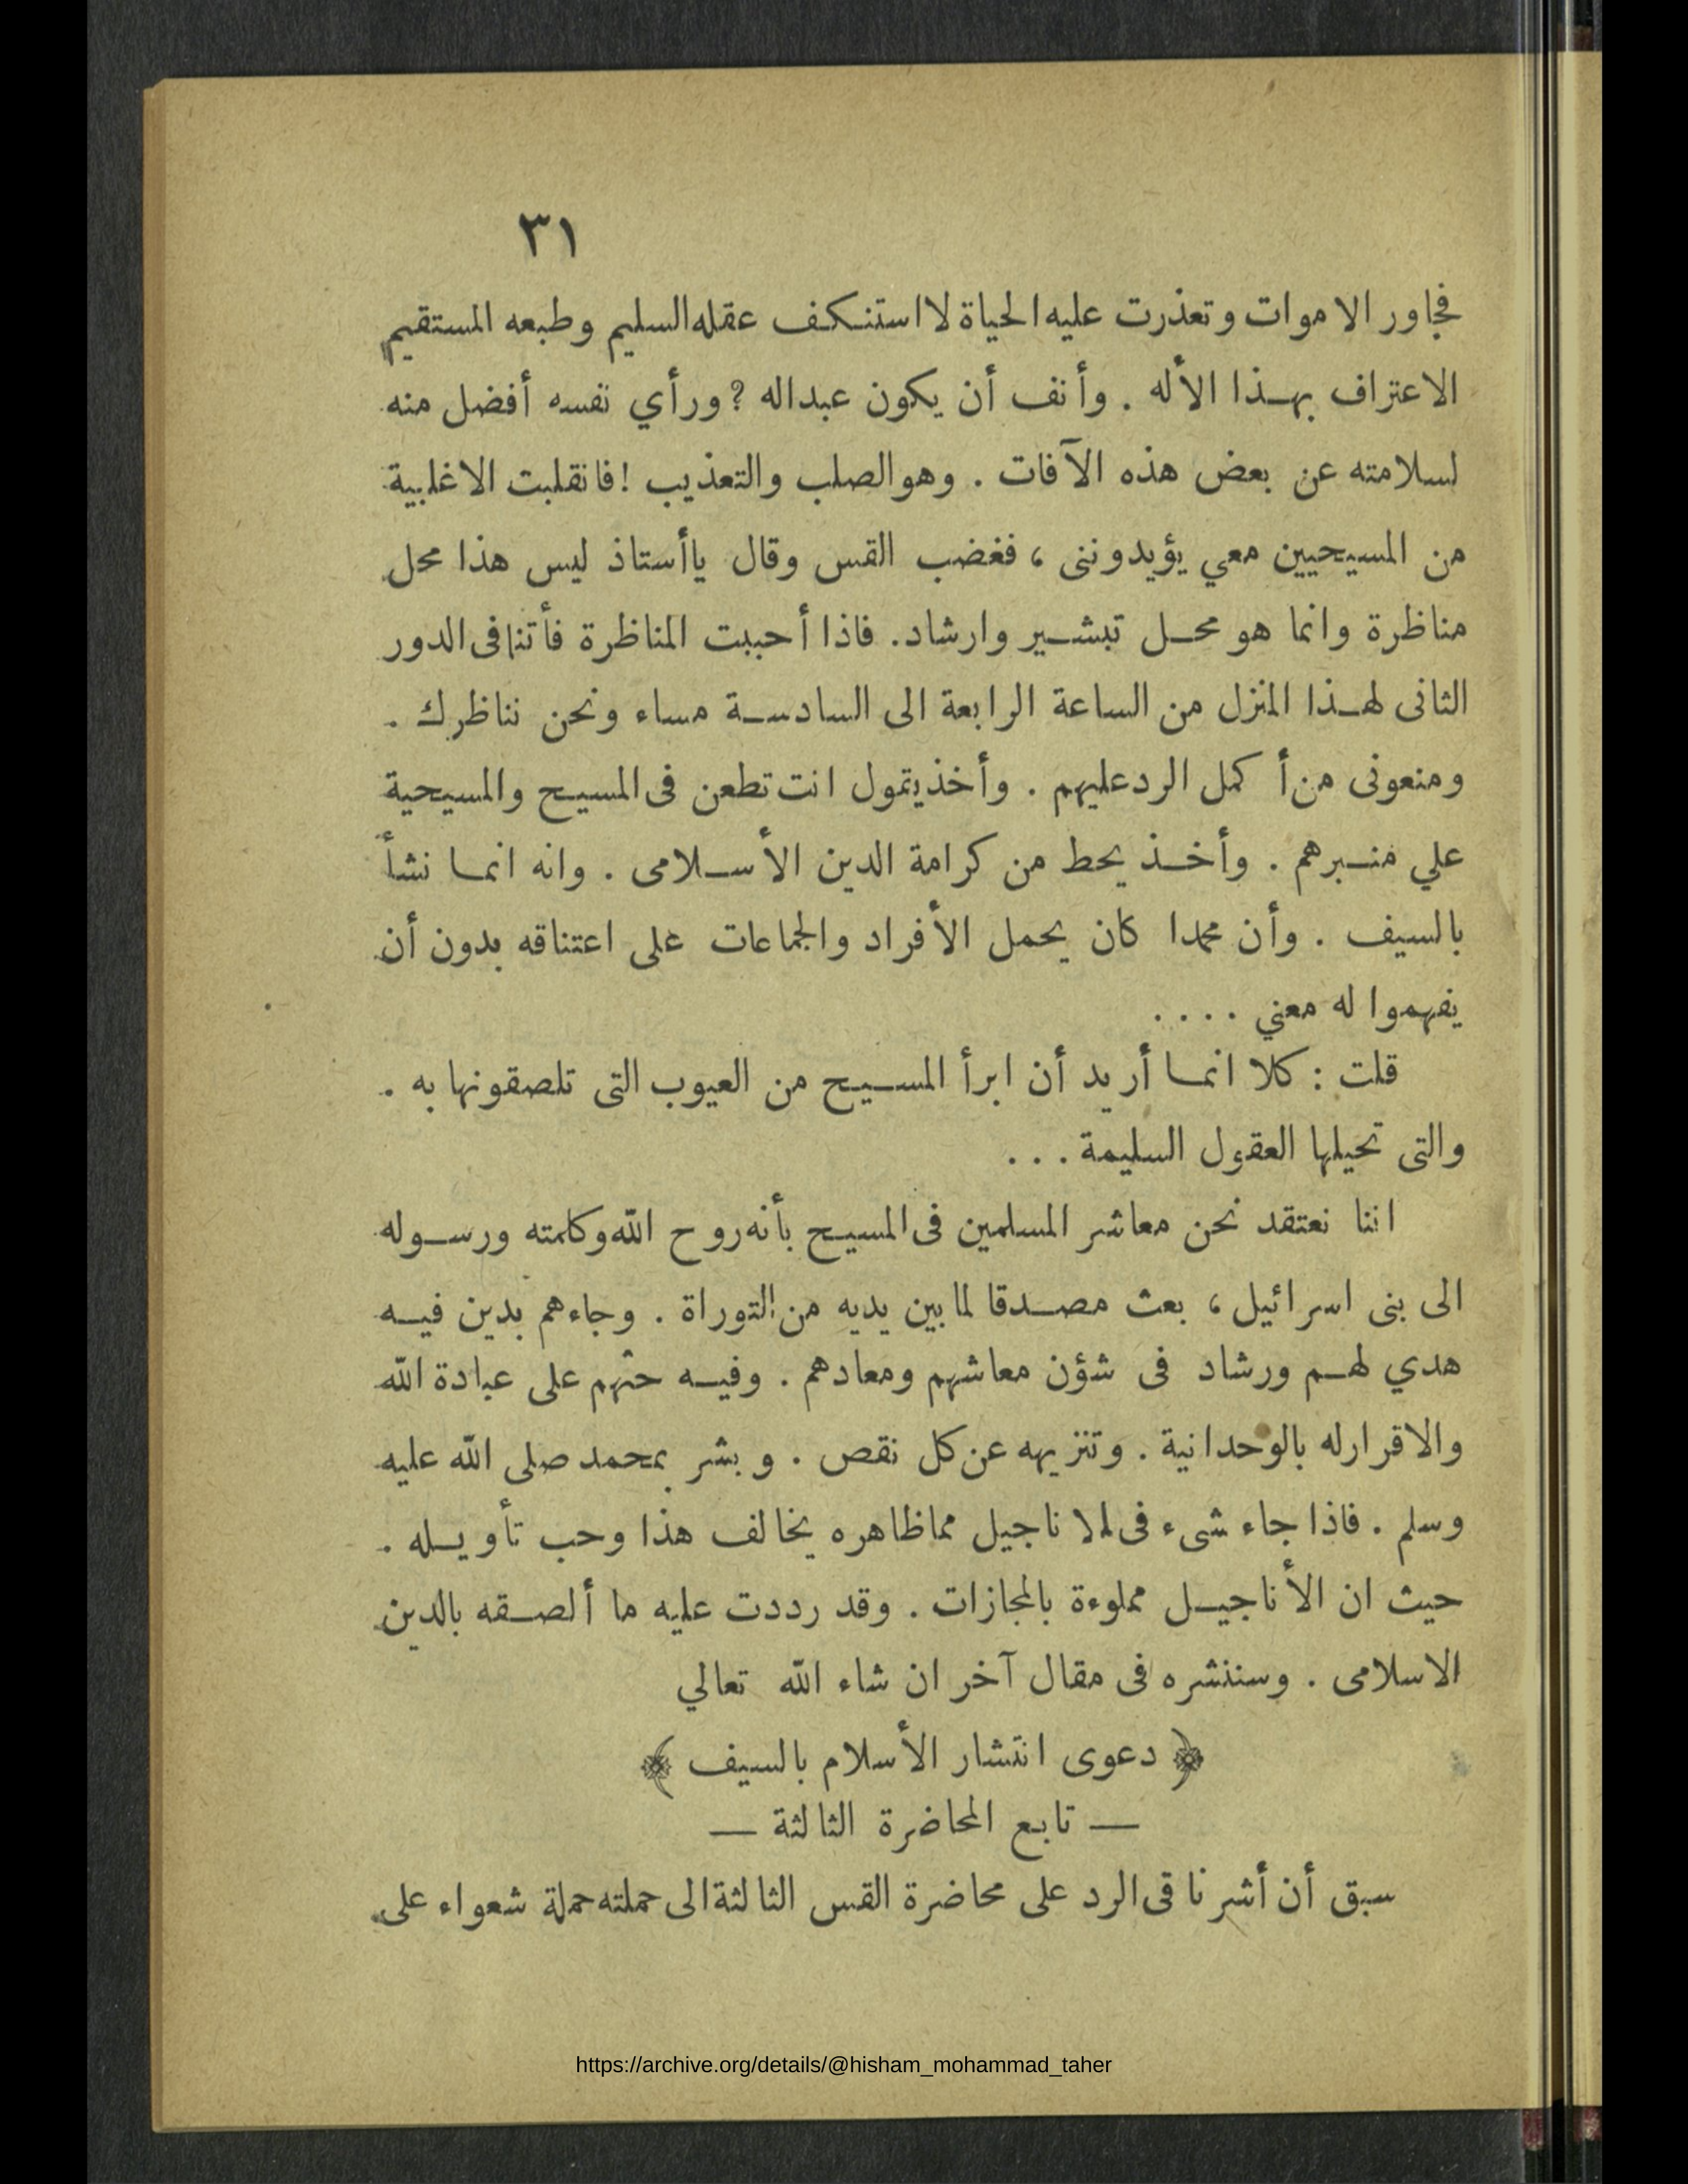 ٣١
فجاور الاموات وتعذرت عليه الحياة لا استنكف عقله السليم وطبعه المستقيم
الاعتراف بهذا الأله . وأنف أن يكون عبداله ؟ ورأي نفسه أفضل منه
لسلامته عن بعض هذه الآفات . وهو الصلب والتعذيب ! فانقلبت الاغلبية
من المسيحيين معي يؤيدوننى ، فغضب القس وقال ياأستاذ ليس هذا محل
مناظرة وانما هو محل تبشير وارشاد. فاذا أحببت المناظرة فأتنا فى الدور
الثانى لهذا المنزل من الساعة الرابعة الى السادسة مساء ونحن نناظرك .
ومنعونى من أكمل الرد عليهم . وأخذ يتمول انت تطعن فى المسيح والمسيحية
علي منبرهم . وأخذ يحط من كرامة الدين الأسلامى . وانه انما نشأ
بالسيف . وأن محمدا كان يحمل الأفراد والجماعات على اعتناقه بدون أن
يفهموا له معني ....
قلت : كلا انما أريد أن ابرأ المسيح من العيوب التى تلصقونها به .
والتى تحيلها العقول السليمة ...
اننا نعتقد نحن معاشر المسلمين فى المسيح بأنه روح الله وكلمته ورسوله
الى بنى اسرائيل ، بعث مصدقا لما بين يديه من التوراة . وجاءهم بدين فيه
هدي لهم ورشاد فى شؤن معاشهم ومعادهم . وفيه حثهم على عبادة الله
والاقرارله بالوحدانية . وتنزيهه عن كل نقص . وبشر بمحمد صلى الله عليه
وسلم . فاذا جاء شىء فى الاناجيل مماظاهره يخالف هذا وحب تأويله .
حيث ان الأناجيل مملوءة بالمجازات . وقد رددت عليه ما ألصقه بالدين
الاسلامى . وسننشره فى مقال آخر ان شاء الله تعالي
﴿ دعوى انتشار الأسلام بالسيف ﴾
— تابع المحاضرة الثالثة —
سبق أن أشرنا قى الرد على محاضرة القس الثالثة الى حملته حملة شعواء على
https://archive.org/details/@hisham_mohammad_taher